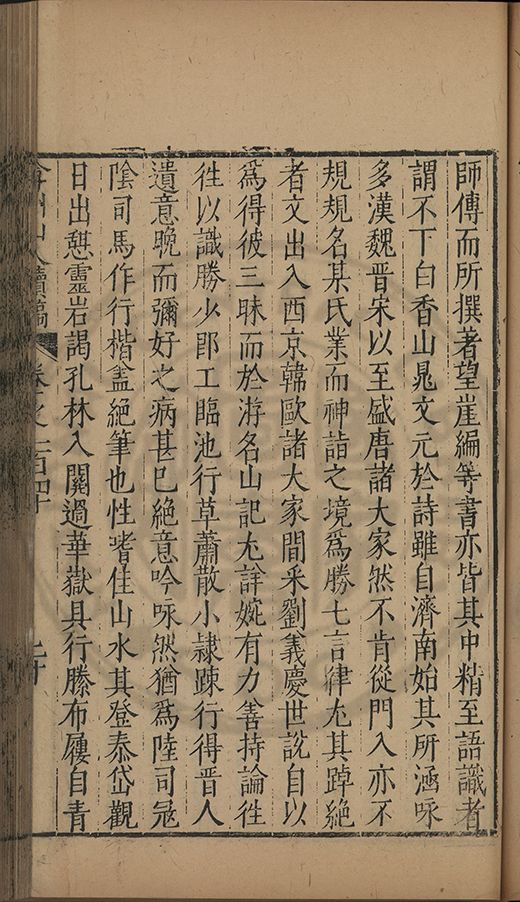 師傅而所撰著望崖編等書亦皆其中精至語識者
謂不下白香山晁文元於詩雖自濟南始其所涵咏
多漢魏晉宋以至盛唐諸大家然不肯從門入亦不
規規名某氏業而神詣之境爲勝七言律尤其踔絶
者文出入西京韓歐諸大家間采劉義慶世說自以
爲得彼三昧而於游名山記尤詳婉有力善持論徃
徃以識勝少郎工臨池行草蕭散小隷踈行得晋人
遺意晚而彌好之病甚已絶意吟咏然猶爲陸司冦
隂司馬作行楷盖絶筆也性嗜佳山水其登泰岱觀
日出憇靈岩謁孔林入關過華嶽具行縢布屨自青
弇州山人續稿 卷之一百四十 二十